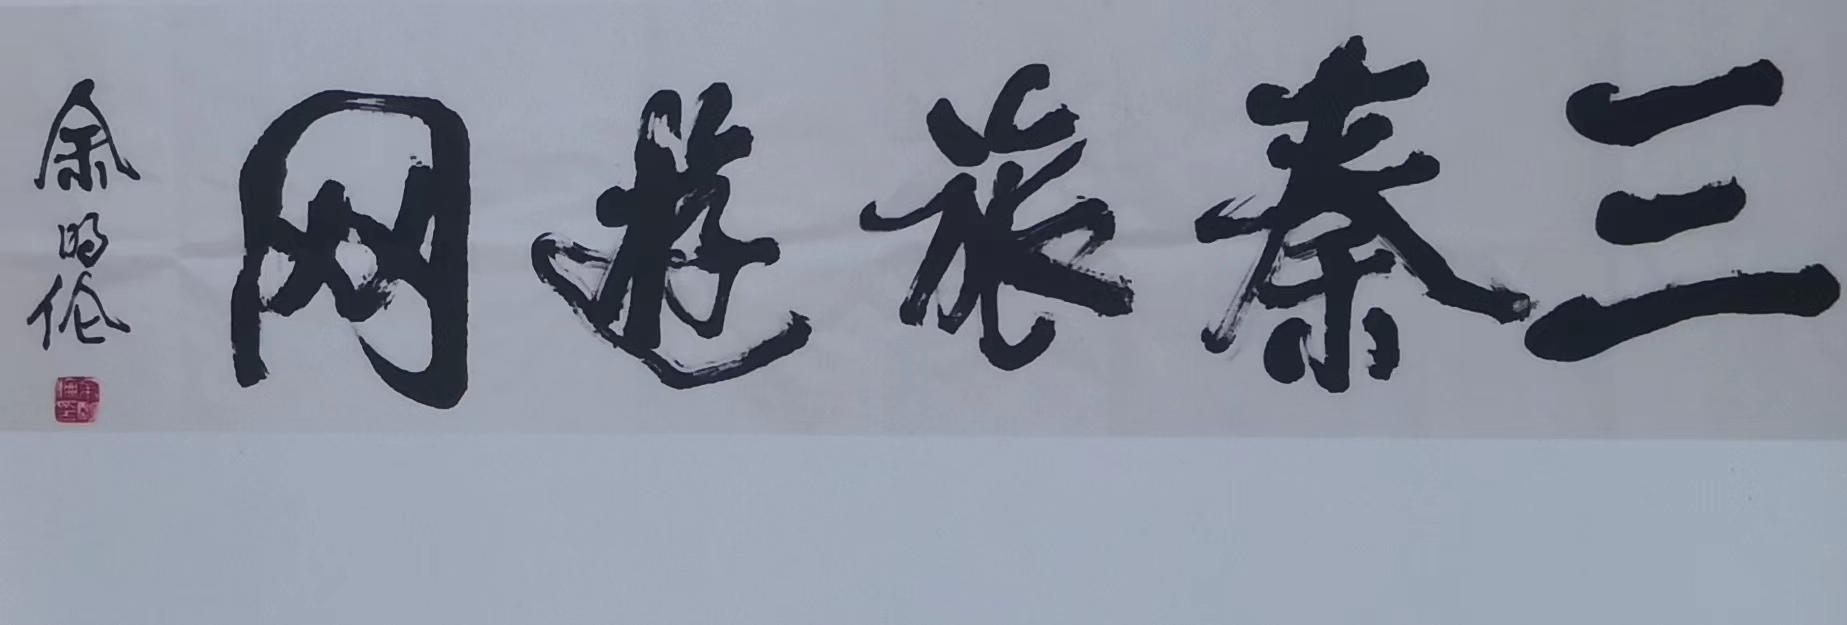 三秦旅遊网
余明伦